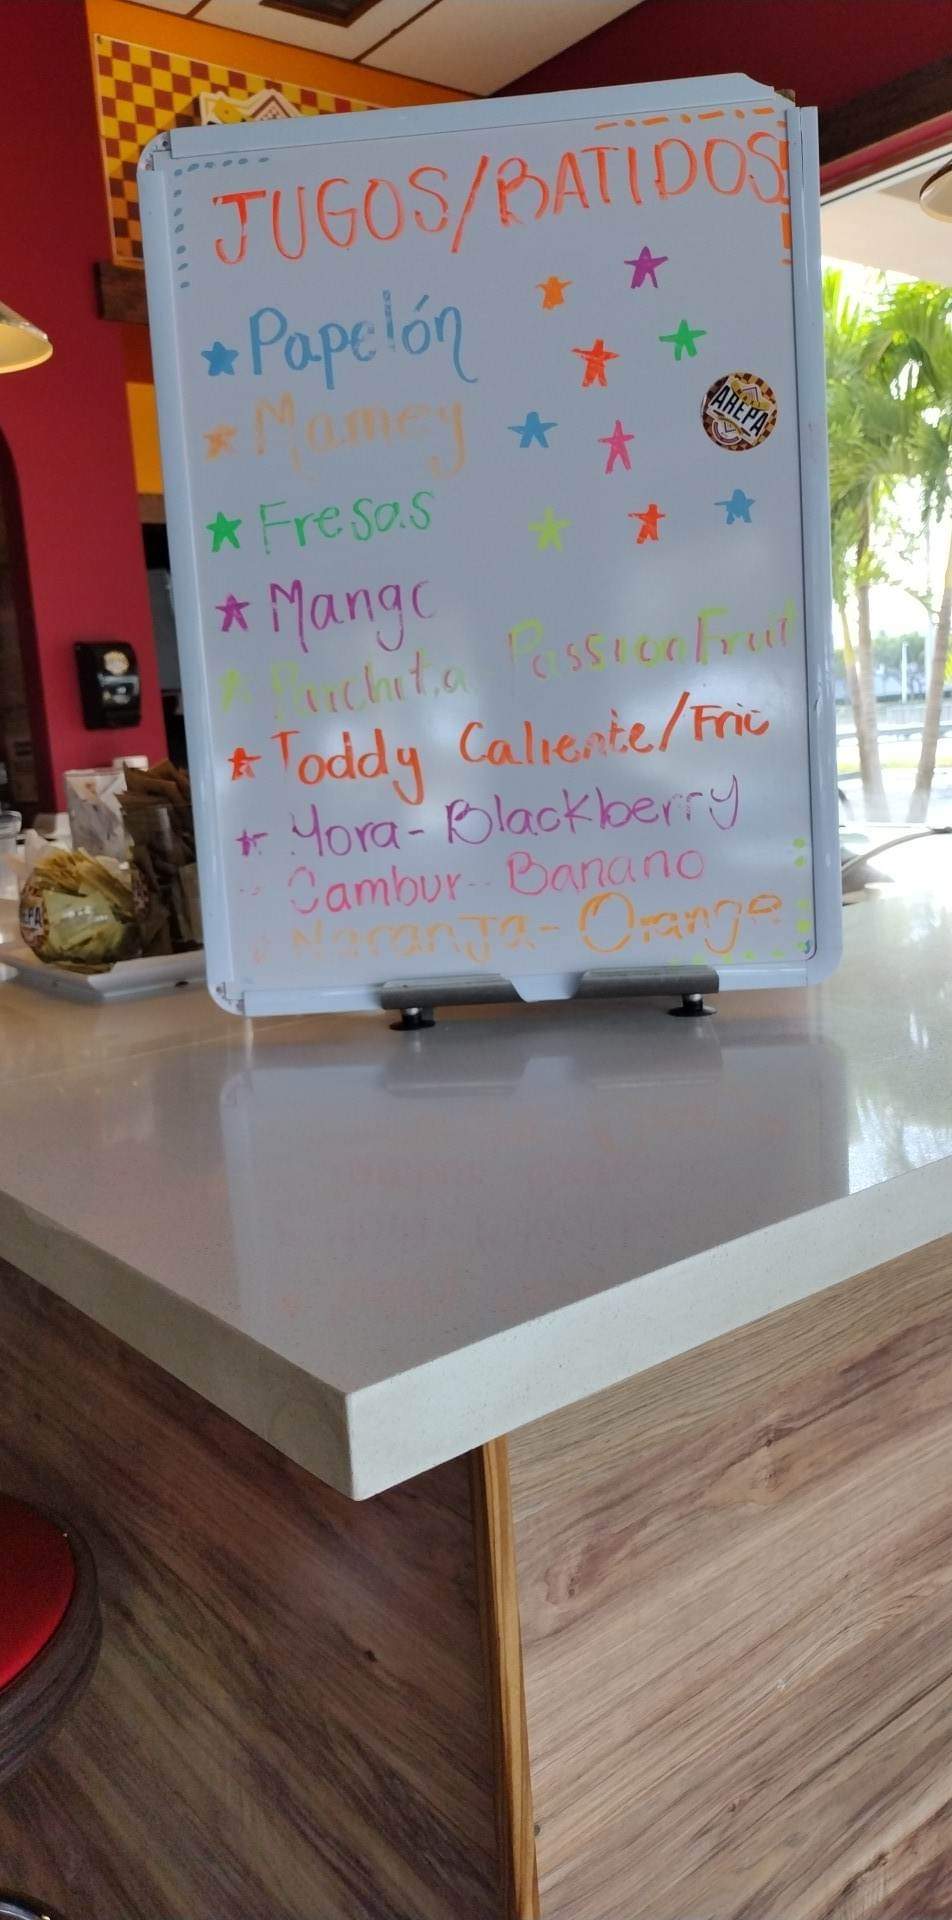 JUGOS/BATIDOS
Papelón
Mamey
AREPA
Fresas
Mango
Parchita PassionFruit
Toddy Caliente/Frio
Mora-Blackberry
Cambur-Banano
Naranja-Orange